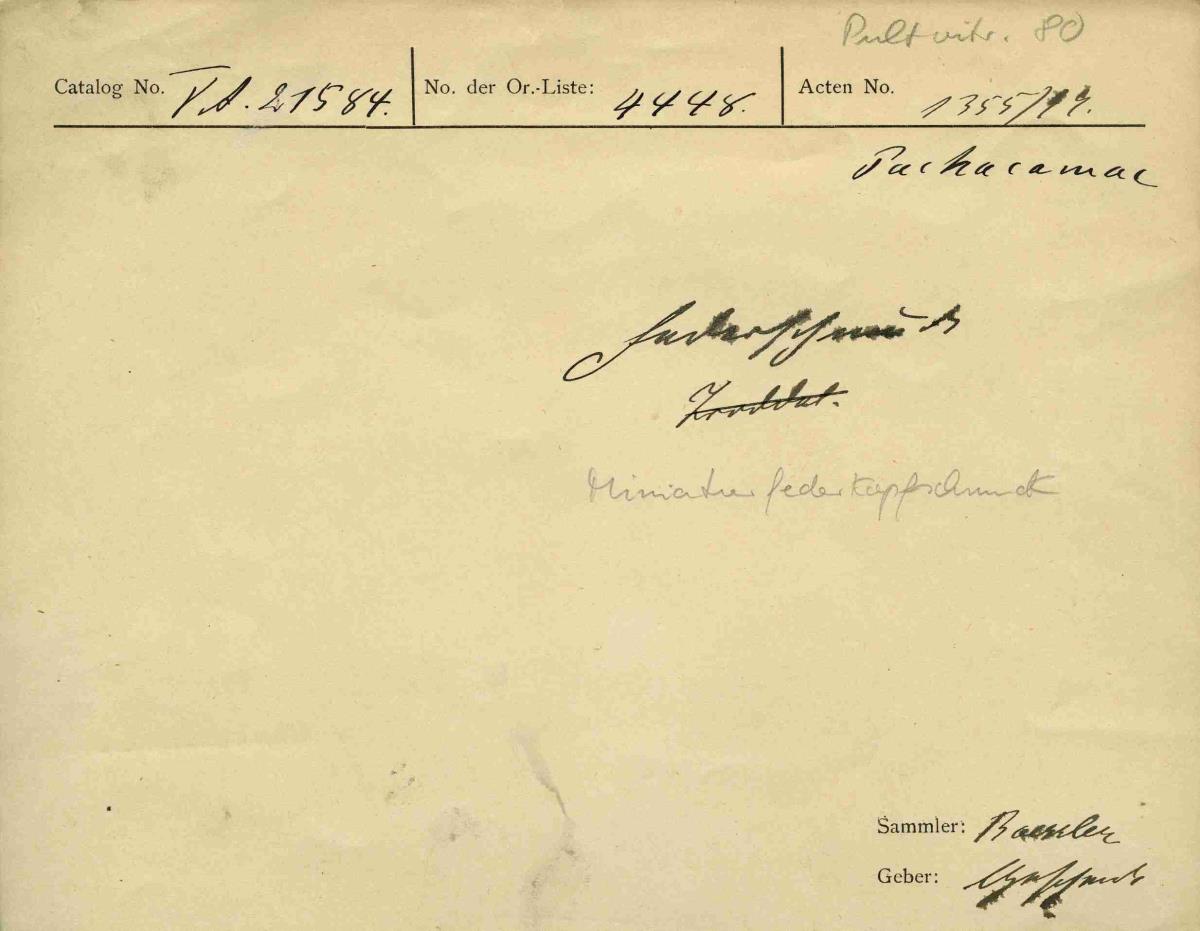 Pultvitr. 80
Catalog No. V.A. 21584. No. der Or.-Liste: 4448. Acten No. 1355/
Pachacamac
Federschmuck
Miniatur federkopfschmuck
Sammler: Baessler
Geber: Geschenk